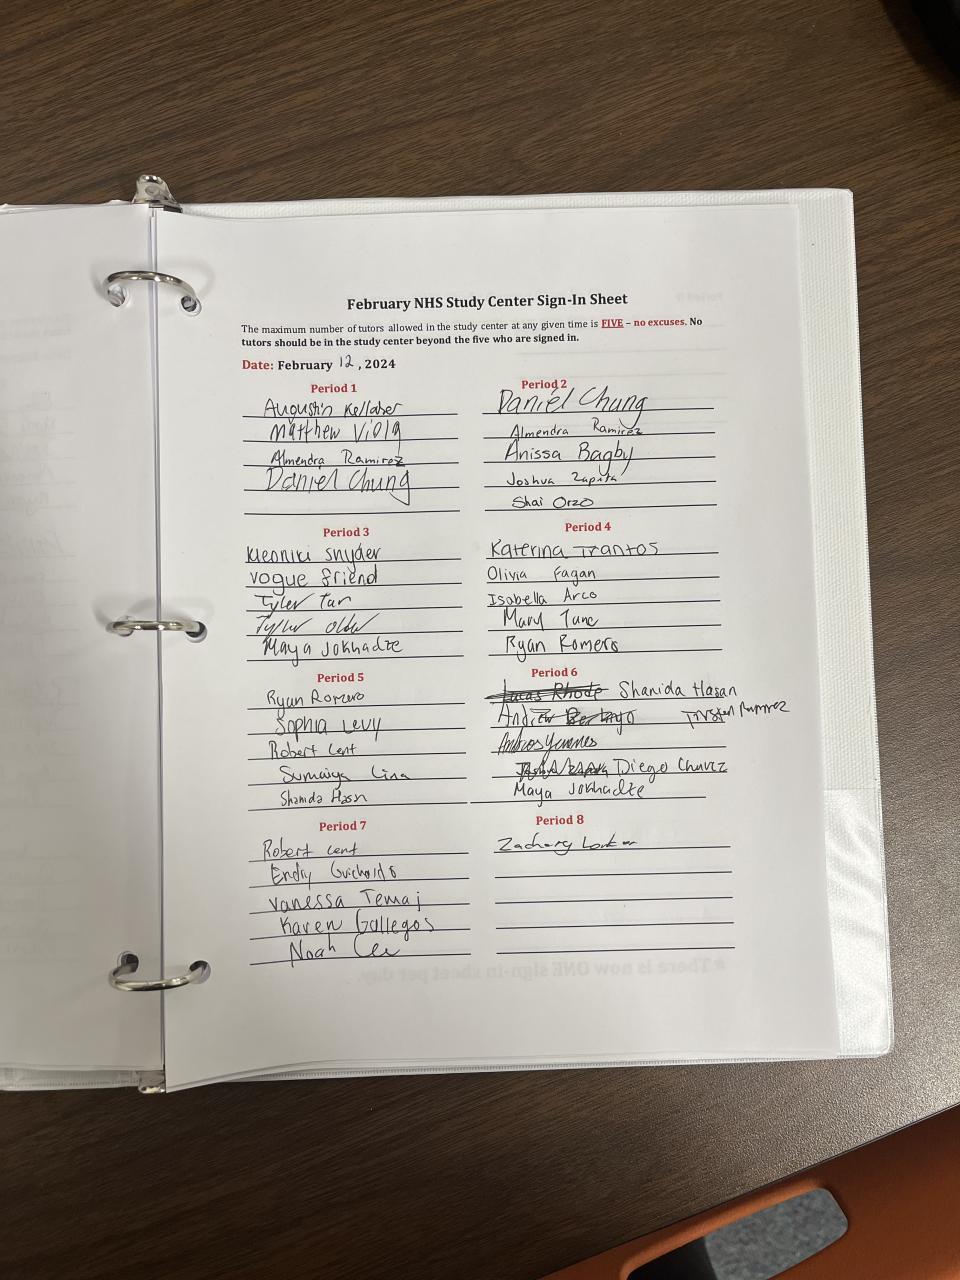 February NHS Study Center Sign-In Sheet
The maximum number of tutors allowed in the study center at any given time is FIVE – no excuses. No
tutors should be in the study center beyond the five who are signed in.
Date: February 12, 2024
Period 1
Augustin Kellaher
Matthew Viola
Almendra Ramirez
Daniel Chung
Period 2
Daniel Chung
Almendra Ramirez
Anissa Bagby
Joshua Zapata
Shai Orzo
Period 3
Kleoniki Snyder
Vogue friend
Tyler Tan
Tyler
Maya Jokhadze
Period 4
Katerina Trantos
Olivia Fagan
Isabella Arco
Mary Tanc
Ryan Romero
Period 5
Ryan Romero
Sophia Levy
Robert Cent
Sumaiya Lina
Shanida Hasn
Period 6
Lucas Rhode Shanida Hasan
Ramirez
Diego Chavez
Maya Jokhadze
Period 7
Robert Cent
Endry
Vanessa Temaj
Karen Gallegos
Noah
Period 8
Zachary
* There is now ONE sign-in sheet per day.